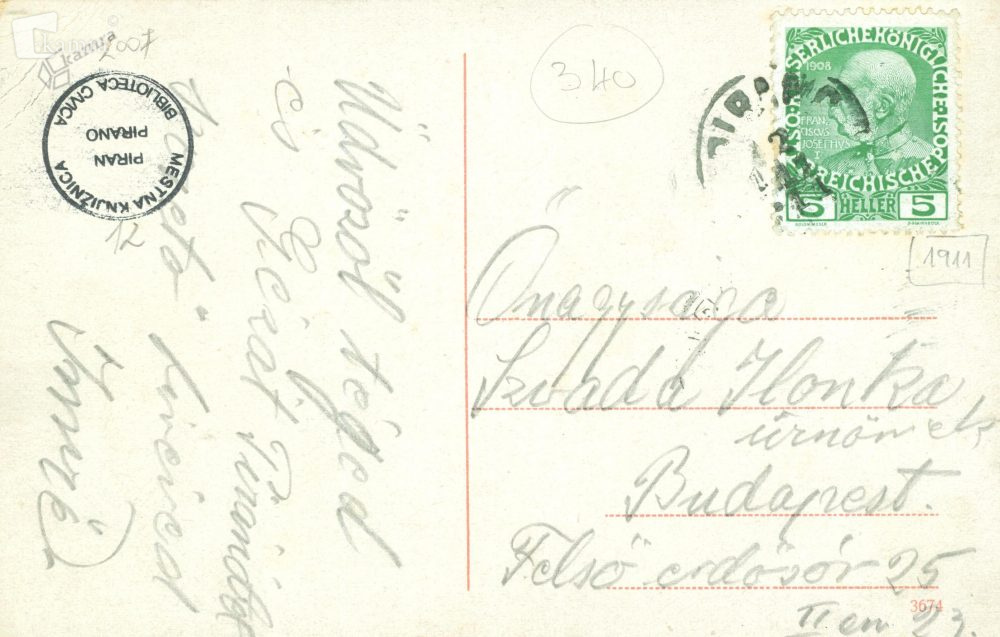 kamra
2007
MESTNA KNJIŽNICA
PIRAN
PIRANO
BIBLIOTECA CIVICA
12
Üdvözöl téged
és Gézát Piranóból
szerető
340
PIRANO
KAISERLICHE KÖNIGLICHE ÖSTERREICHISCHE POST
1908
FRANCISCUS
JOSEPHUS
I
5 HELLER 5
1911
Őnagysága
Szvada Ilonka
úrnőnek
Budapest.
Felső erdősor 25
II em 23.
3674